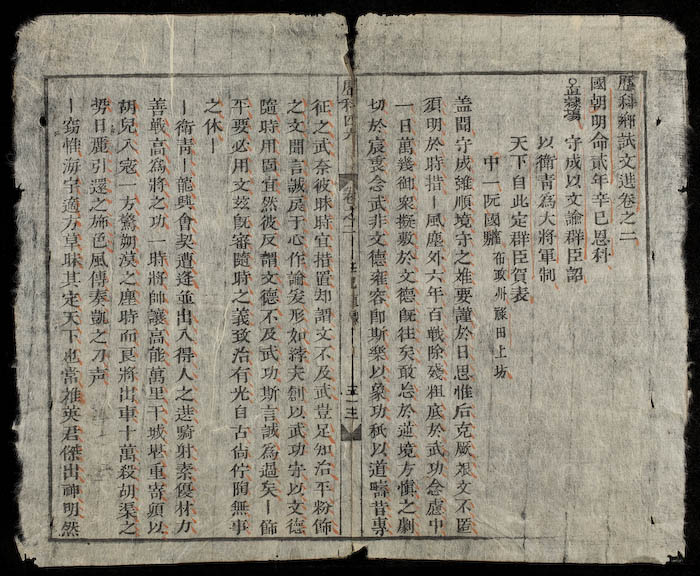 歷科鄉試文選卷之二
國朝明命貳年辛巳恩科
場 守成以文論群臣詔
以衛青為大將軍制
天下自此定群臣賀表
中一阮國 布政州 田上坊
蓋聞守成雖順境守之难要謹於日思惟后克厥艰文不匿
須明於時措丨風塵外六年百戰除殘粗底於武功念慮中
一日萬幾御衆擬敷於文德既往矣敢怠於逆境方慎之劇
切於宸衷念武非文德雍容即斯樂以象功秖以道疇昔專
歷科四六 卷之二
征之武奈彼昧時宜措置却謂文不及武豈足知治平粉飾
之文聞言誠戾于心作論发形如諄夫創以武功守以文德
隨時用固宜然彼反謂文德不及武功斯言誠為過矣丨飾
平要必用文兹既審隨時之義致治有光自古尚佇陶無事
之休丨
丨衛青丨龍興會契遭逢並出入得人之選騎射素優材力
善戰高為將之功一時將帥讓高能萬里干城堪重寄頻以
胡兒入寇一方驚朔漠之塵時而良將出車十萬殺胡渠之
勢日麗引還之旆色風傳奏凱之刀声
丨窃惟海宇適方草昧其定天下也當雄英君傑出神明然